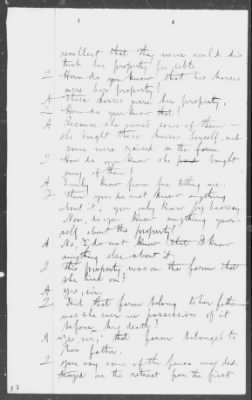 recollect that they never would dis
turb her property for debts
Q How do you know that his horses
were her property?
A These horses were her property.
Q How do you know that?
A Because she owned some of them —
she bought these horses herself, and
some were raised on the farm
Q How do you know she bought
any of them?
A I only know from her telling me;
Q Then you do not know anything
about it, you only know by hearsay.
Now, do you know anything your-
self about the property?
A No, I do not know that I know
anything else about it.
Q This property was on the farm that
she lived on?
A Yes, sir,
Q Did that farm belong to her father —
was she ever in possession of it
before his death?
A Yes, sir; that farm belonged to
her father.
Q You say some of the fence was des-
troyed on the retreat from the first